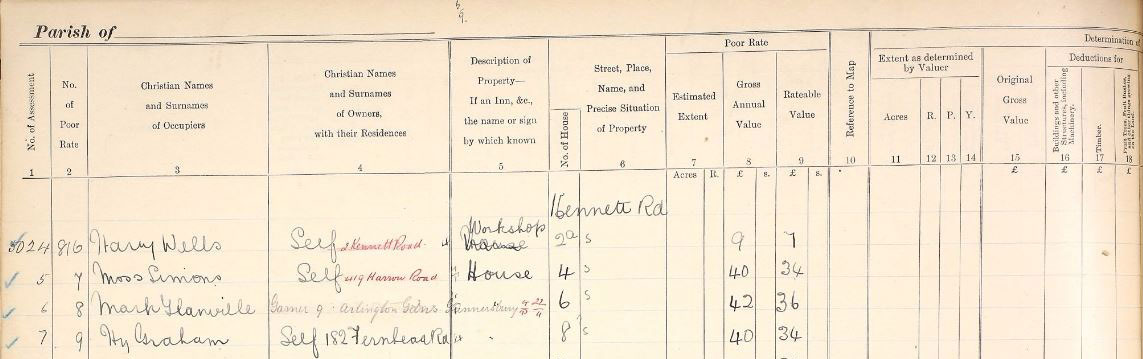 Parish of
Poor Rate
Determination of
No. of Assessment
No. of Poor Rate
Christian Names and Surnames of Occupiers
Christian Names and Surnames of Owners, with their Residences
Description of Property— If an Inn, &c., the name or sign by which known
No. of House
Street, Place, Name, and Precise Situation of Property
Estimated Extent
Gross Annual Value
Rateable Value
Reference to Map
Extent as determined by Valuer
Acres R. P. Y.
Original Gross Value
Deductions for
Buildings and other Structures, including Machinery.
Timber.
1 2 3 4 5 6 7 8 9 10 11 12 13 14 15 16 17 18
Acres R. £ s. £ s. £ £ £ £
Kennett Rd
3024 816 Harry Wells Self 2 Kennett Road Workshop House 2a s 9 7
5 7 Moss Simons Self 419 Harrow Road House 4 s 40 34
6 8 Mark Glanville Garner 9 Arlington Gdns Gunnersbury 6 s 42 36
7 9 Hy Graham Self 182 Fernhead Rd " 8 s 40 34